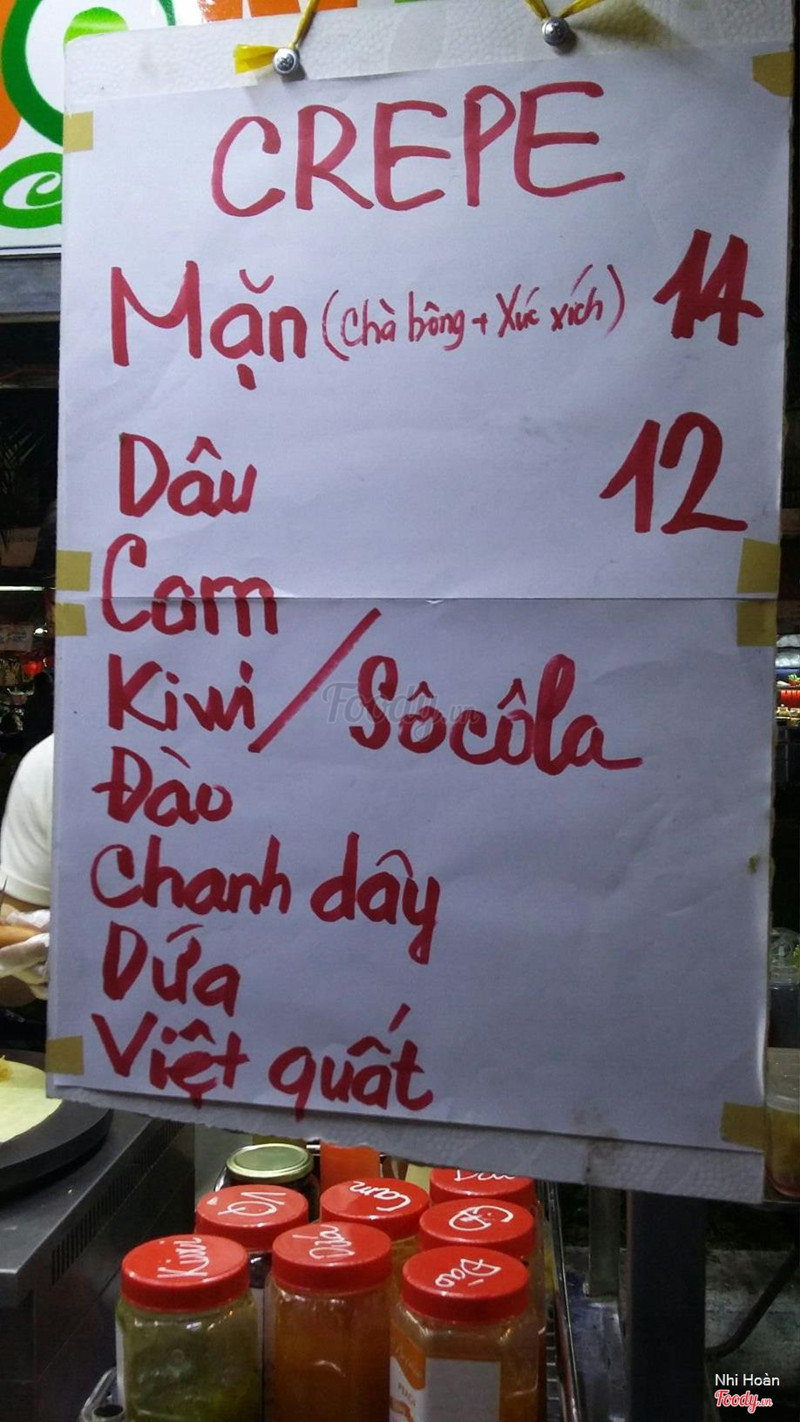 CREPE
Mặn (Chà bông + Xúc xích) 14
Dâu 12
Cam
Kiwi / Sôcôla
Đào
Chanh dây
Dứa
Việt quất
Foody.vn
VQ
Cam
Kiwi
Dứa
CD
Đào
Nhi Hoàn
Foody.vn